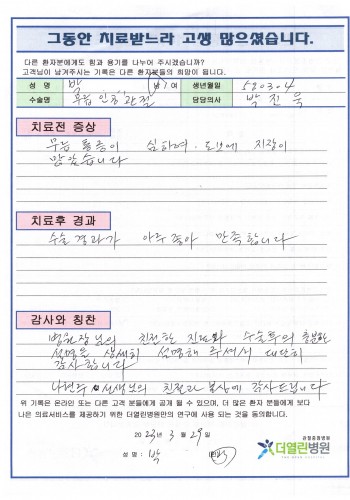 그동안 치료받느라 고생 많으셨습니다.
다른 환자분에게도 힘과 용기를 나누어 주시겠습니까?
고객님이 남겨주시는 기록은 다른 환자분들의 희망이 됩니다.
성 명 박 (남) 여 생년월일 580304
수술명 무릎 인공관절 담당의사 박진욱
치료전 증상
무릎 통증이 심하며. 도보에 지장이
많았습니다
치료후 경과
수술경과가 아주 좋아 만족합니다
감사와 칭찬
병원장님의 친절한 진료와 수술후의 충분한
설명을 상세히 설명해 주셔서 대단히
감사합니다
나현주 선생님의 친절과 봉사에 감사드립니다
위 기록은 온라인 또는 다른 고객 분들에게 공개 될 수 있으며, 더 많은 환자 분들에게 보다
나은 의료서비스를 제공하기 위한 더열린병원만의 연구에 사용 되는 것을 동의합니다.
2023년 3월 29일
성 명 : 박
관절척추병원
더열린병원